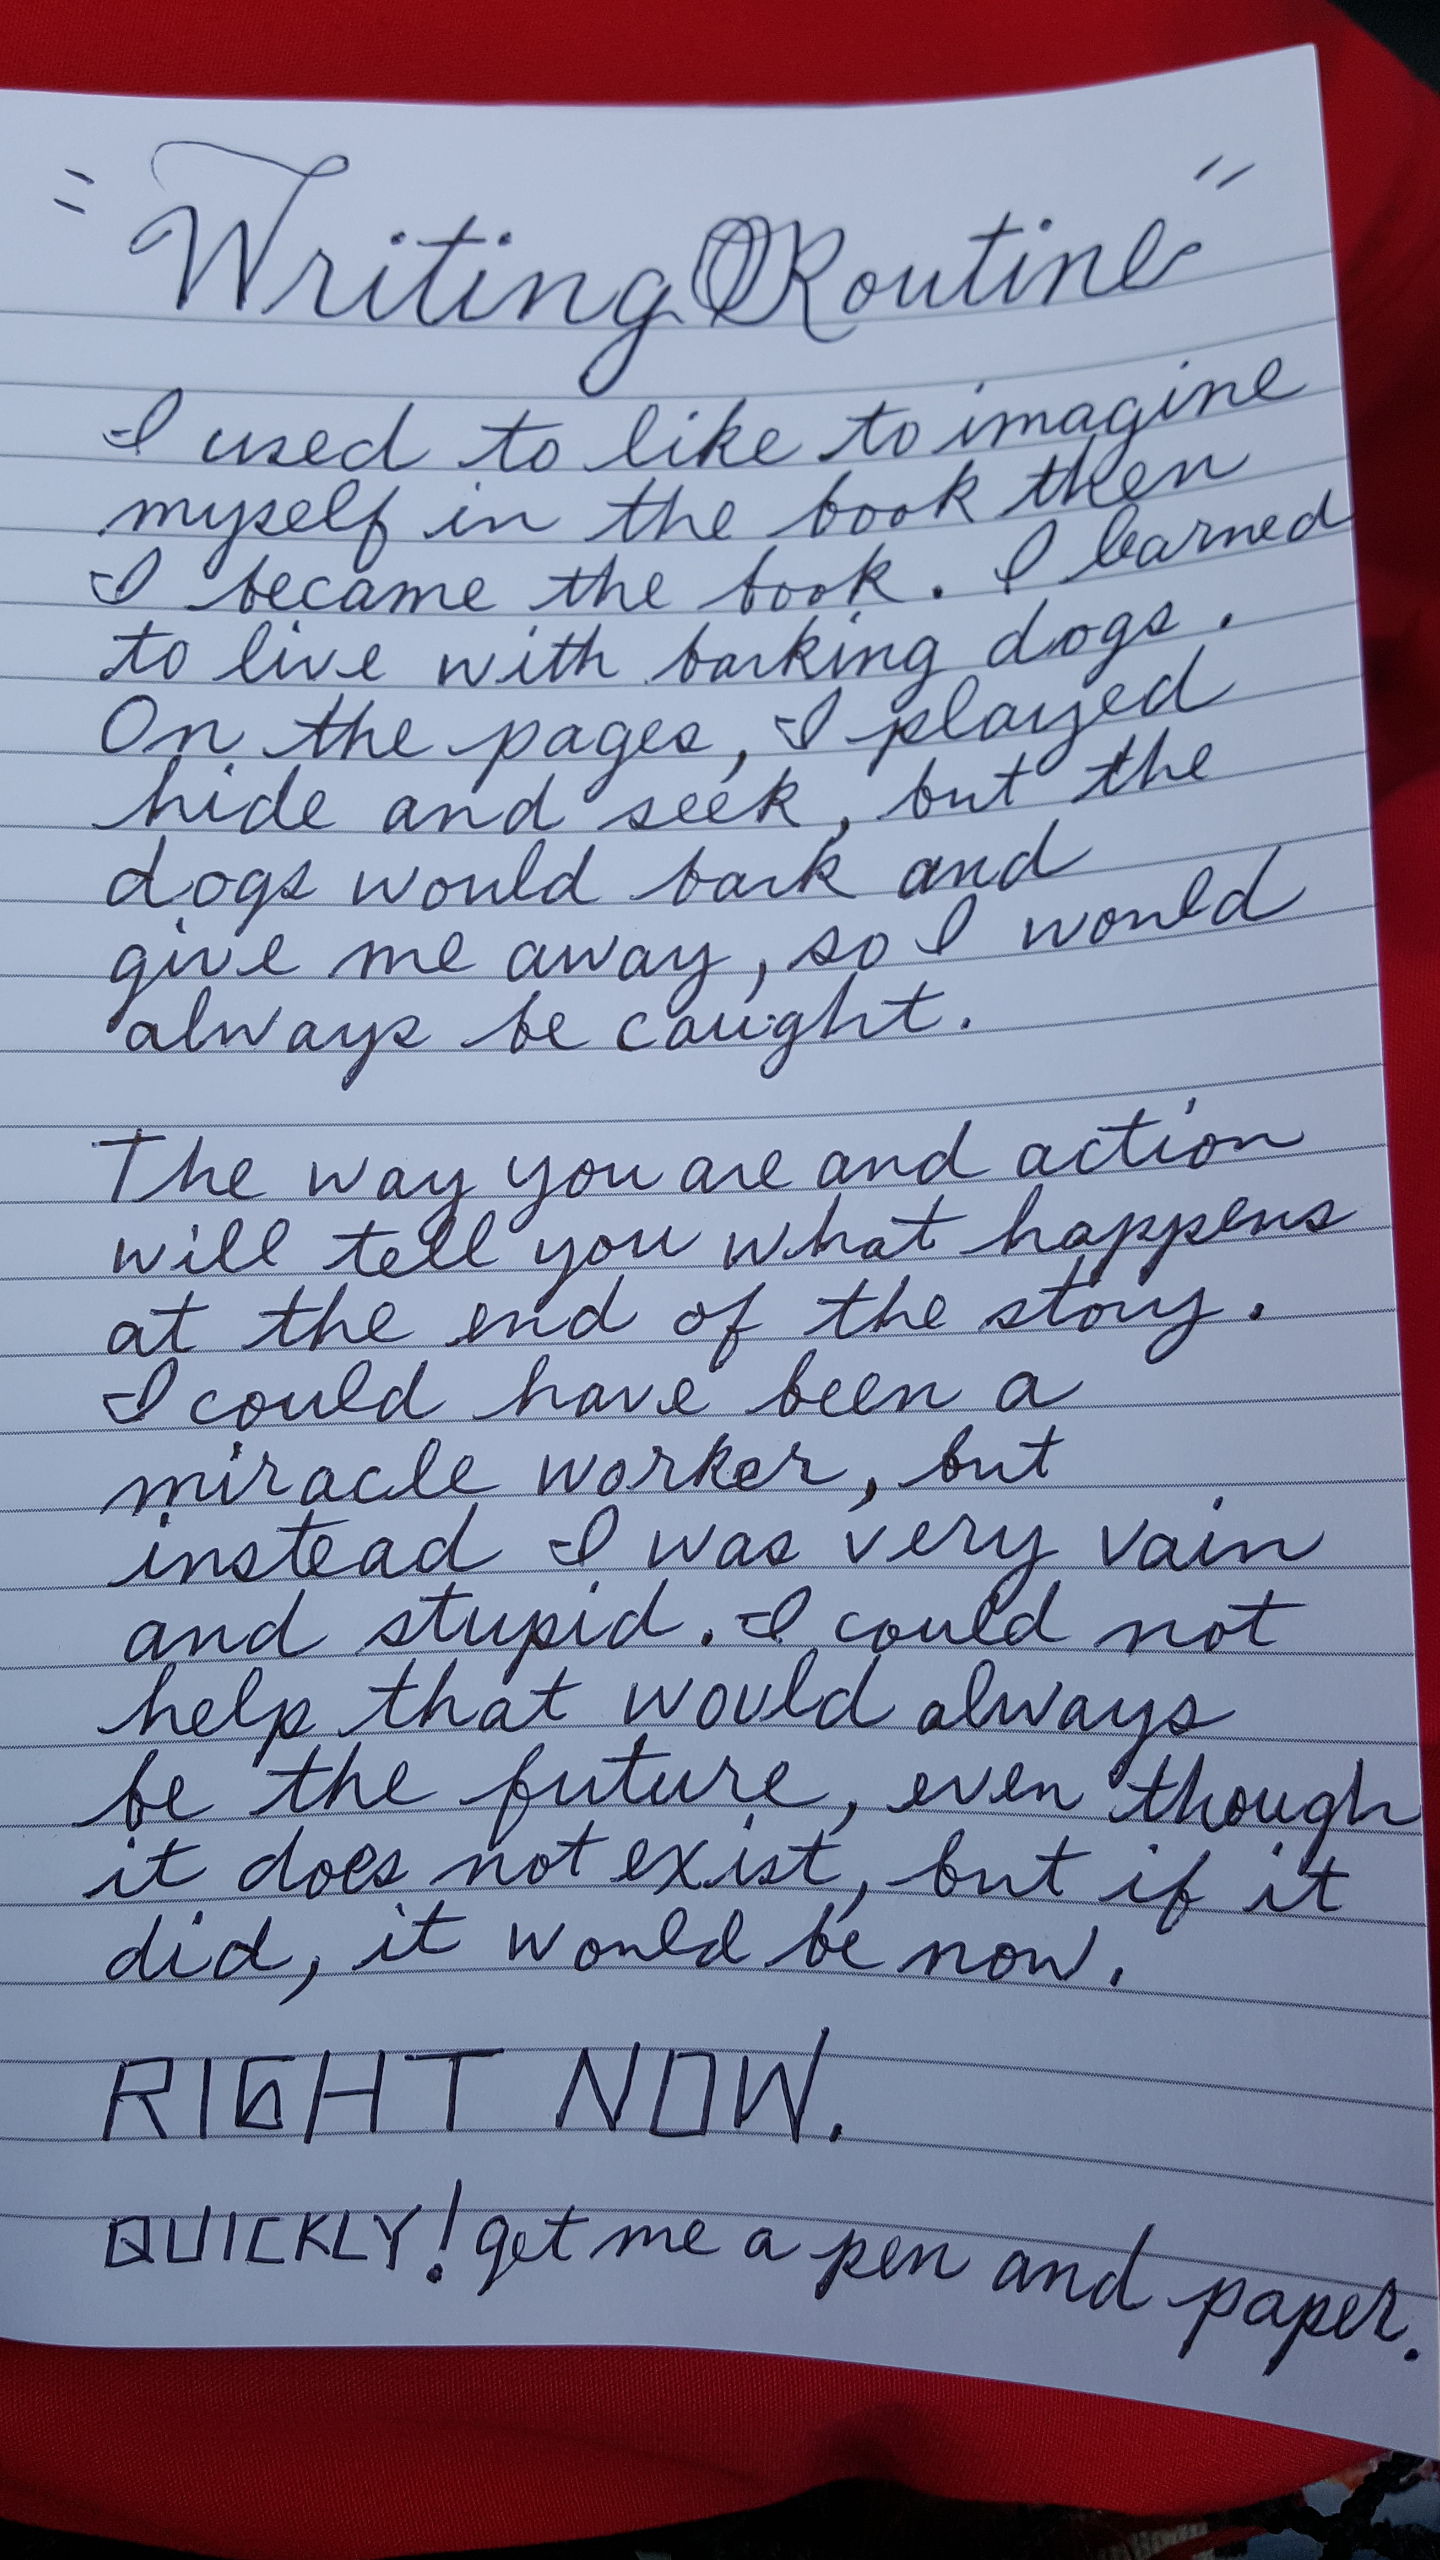 "Writing Routine"
I used to like to imagine
myself in the book then
I became the book. I learned
to live with barking dogs.
On the pages, I played
hide and seek, but the
dogs would bark and
give me away, so I would
always be caught.
The way you are and action
will tell you what happens
at the end of the story.
I could have been a
miracle worker, but
instead I was very vain
and stupid. I could not
help that would always
be the future, even though
it does not exist, but if it
did, it would be now.
RIGHT NOW.
QUICKLY! get me a pen and paper.